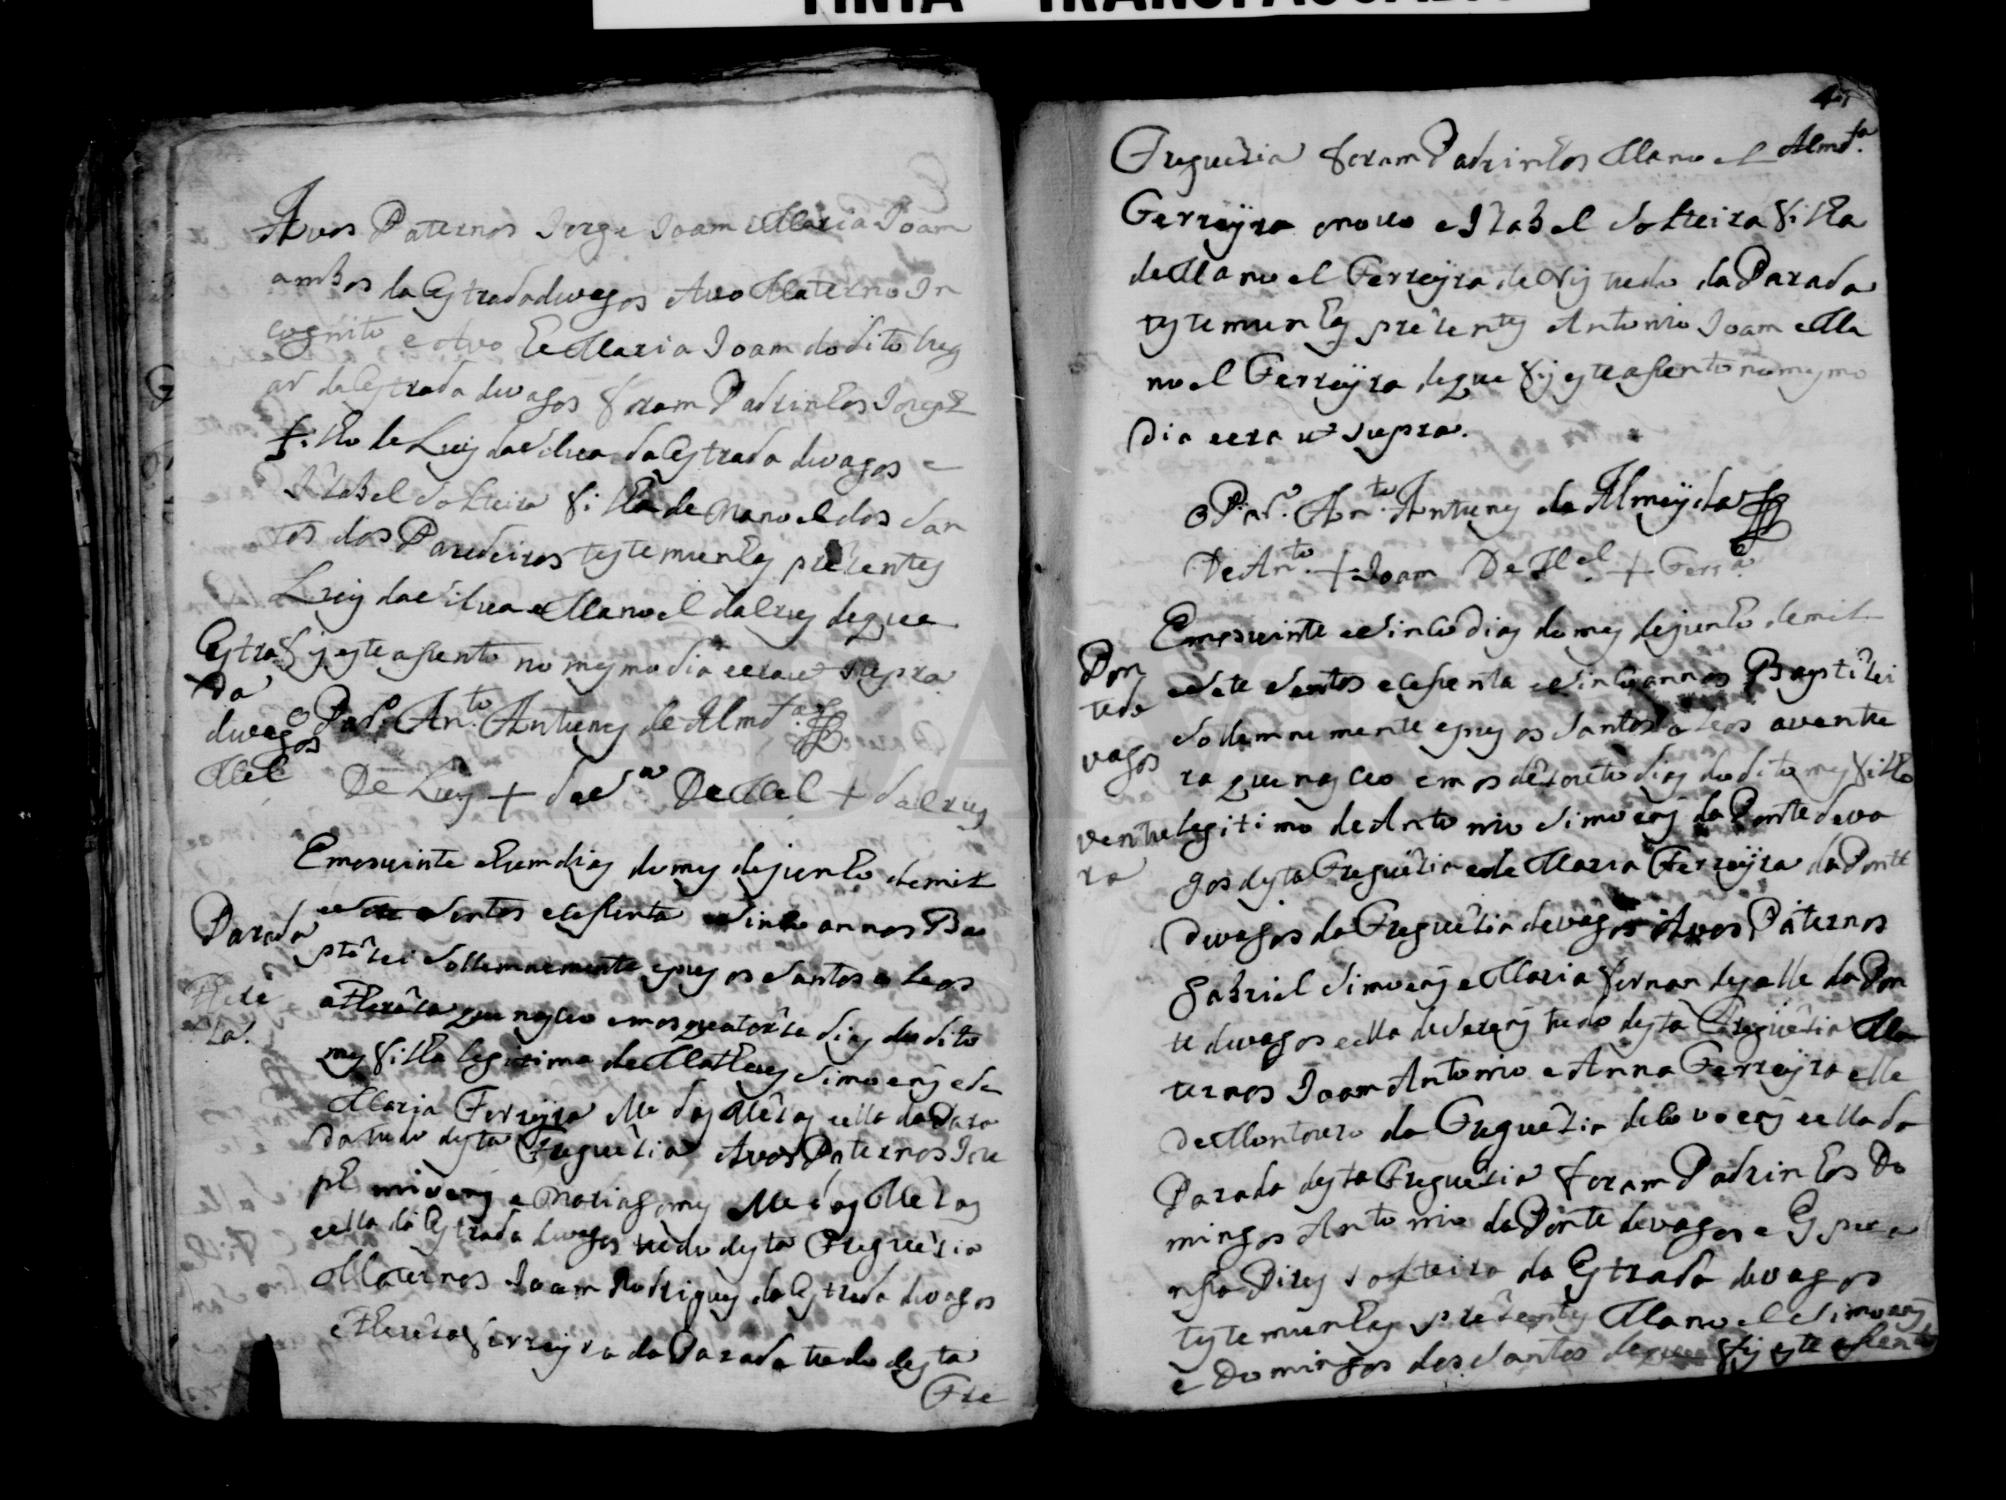 Avos Paternos Jorge Joam e Maria Joam
ambos da Estrada de vagos Avo Materno In
cognito e Avo he Maria Joam do dito lug
ar da Estrada de vagos foram Padrinhos Joseph
filho de Luis da Silva da Estrada de vagos e
Izabel Solteira filha de Manoel dos San
tos dos Paredeiros testemunhas prezentes
Luis da Silva e Manoel dalruy de que
fis este assento no mesmo dia e era ut supra
O Pad.e An.to Antunes de Almd.a
De Luis + da S.a De M.el + dalruy
Estra
da
de vag
os
M.el
Em os vinte e hum dias do mes de junho de mil
e sete Sentos e cessenta e Sinco annos Ba
ptizei Sollemnemente e pus os Santos oleos
a Thereza que nasceo em os quatorze dias do dito
mes filha legitima de Matheus Simoens e de
Maria Ferreyra elle das Mezas e ella da Para
da tudo desta Freguezia Avos Paternos Joze
ph imoens e Maria gomes elle das Mezas
e ella da Estrada de vagos tudo desta Freguezia
Maternos Joam Rodrigues da Estrada de vagos
e Thereza ferreyra da Parada tudo desta
Fre
Parada
There
za
Freguezia foram Padrinhos Manoel Almd.a
Ferreyra o novo e Izabel Solteira filha
de Manoel Ferreyra de tudo da Parada
testemunhas prezentes Antonio Joam e Ma
noel Ferreyra de que fis este assento no mesmo
dia e era ut Supra.
O P.ad.e An.to Antunes de Almeyda
De An.to + Joam De M.el + Ferr.a
Em os vinte e Sinco dias do mes de junho de mil
e Sete Sentos e cessenta e Sinco annos Baptizei
Sollemnemente e pus os Santos oleos a ventu
ra que nasceo em os dezoito dias do dito mes filho
legitimo de Antonio Simoens da Ponte de va
gos desta Freguezia e de Maria Ferreyra da Ponte
de vagos da Freguezia de vagos Avos Paternos
Gabriel Simoens e Maria fernandes elle da Pon
te de vagos e ella de tudo desta Freguezia Ma
ternos Joam Antonio e Anna Ferreyra elle
de Montouro da Freguezia de Covoens e ella da
Parada desta Freguezia foram Padrinhos Do
mingos Antonio da Ponte de vagos e Espera
nssa Pires solteira da Estrada de vagos
testemunhas prezentes Manoel Simoens
e Domingos dos Santos de que fis este assento
Pon
te de
vagos
ventu
ra